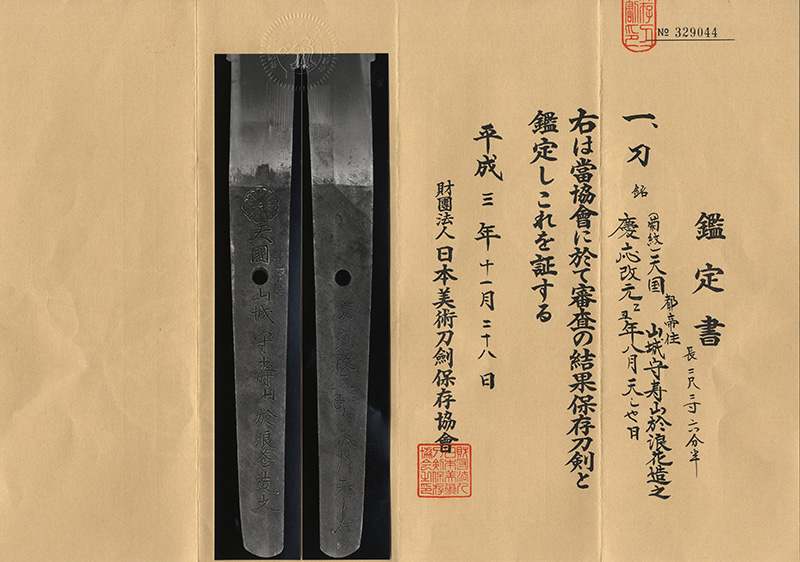 № 329044
鑑定書
一、刀
銘
(菊紋)天国
都帝住
山城守寿山於浪花造之
慶応改元乙丑年八月天乙也日
長二尺三寸六分半
右は當協會に於て審査の結果保存刀劍と
鑑定しこれを証する
平成三年十一月二十八日
財團法人日本美術刀劍保存協會
天國
山城守寿山於浪花造之